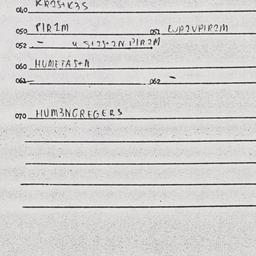 040 KR2S+K3S
050 PIR2M 051 EUR2UPIR2M
052 - 4 S+2S+2N PIR2M
060 HUMETAS+N
061 - 062 -
070 HUM3NGREGERS